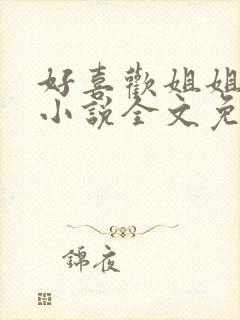 好喜歡姐姐
小說全文免
錦夜